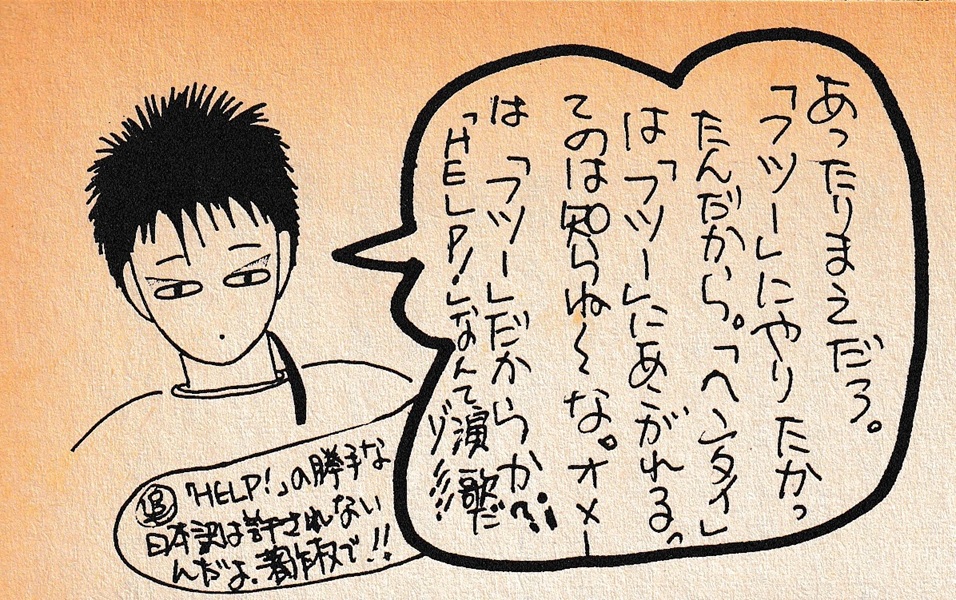 あったりまえだろ。
「フツー」にやりたかっ
たんだから。「ヘンタイ」
は「フツー」にあこがれる。
てのは知らねーな。オメー
は「フツー」だからか?!
「HELP!」なんて演歌だ
ゾ
追 「HELP!」の勝手な
日本訳は許されない
んだよ。著作权で!!